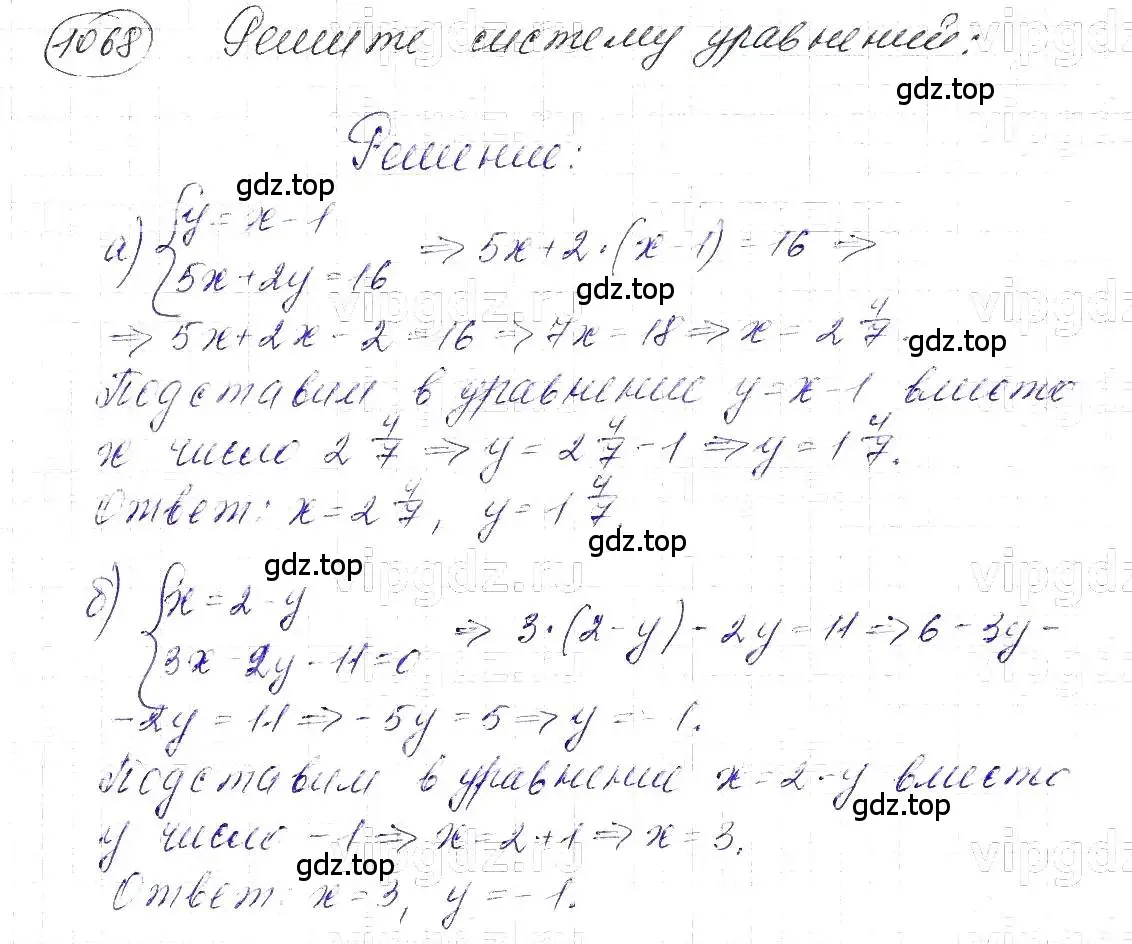 1068 Решите систему уравнений:
gdz.top
Решение:
gdz.top
а) {y = x - 1
5x + 2y = 16 => 5x + 2·(x - 1) = 16 =>
gdz.top
=> 5x + 2x - 2 = 16 => 7x = 18 => x = 2 4/7.
gdz.top
Подставим в уравнение y = x - 1 вместо
x число 2 4/7 => y = 2 4/7 - 1 => y = 1 4/7.
Ответ: x = 2 4/7, y = 1 4/7.
gdz.top
gdz.top
б) {x = 2 - y
3x - 2y - 11 = 0 => 3·(2 - y) - 2y = 11 => 6 - 3y -
- 2y = 11 => -5y = 5 => y = -1.
Подставим в уравнение x = 2 - y вместо
gdz.top
y число -1 => x = 2 + 1 => x = 3.
gdz.top
Ответ: x = 3, y = -1.
vipgdz.ru